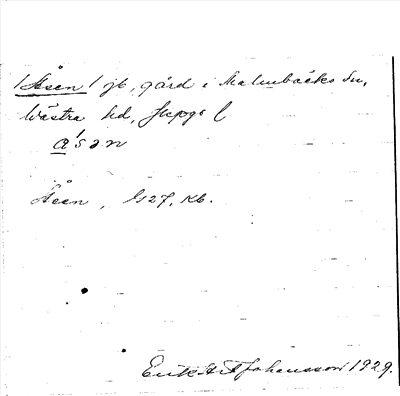 /Åsen/ jb, gård i Malmbäcks sn,
Västra hd, Jkpgs l
a'sən
Åsen, 1927, kb.
Erik A F Johansson 1929.